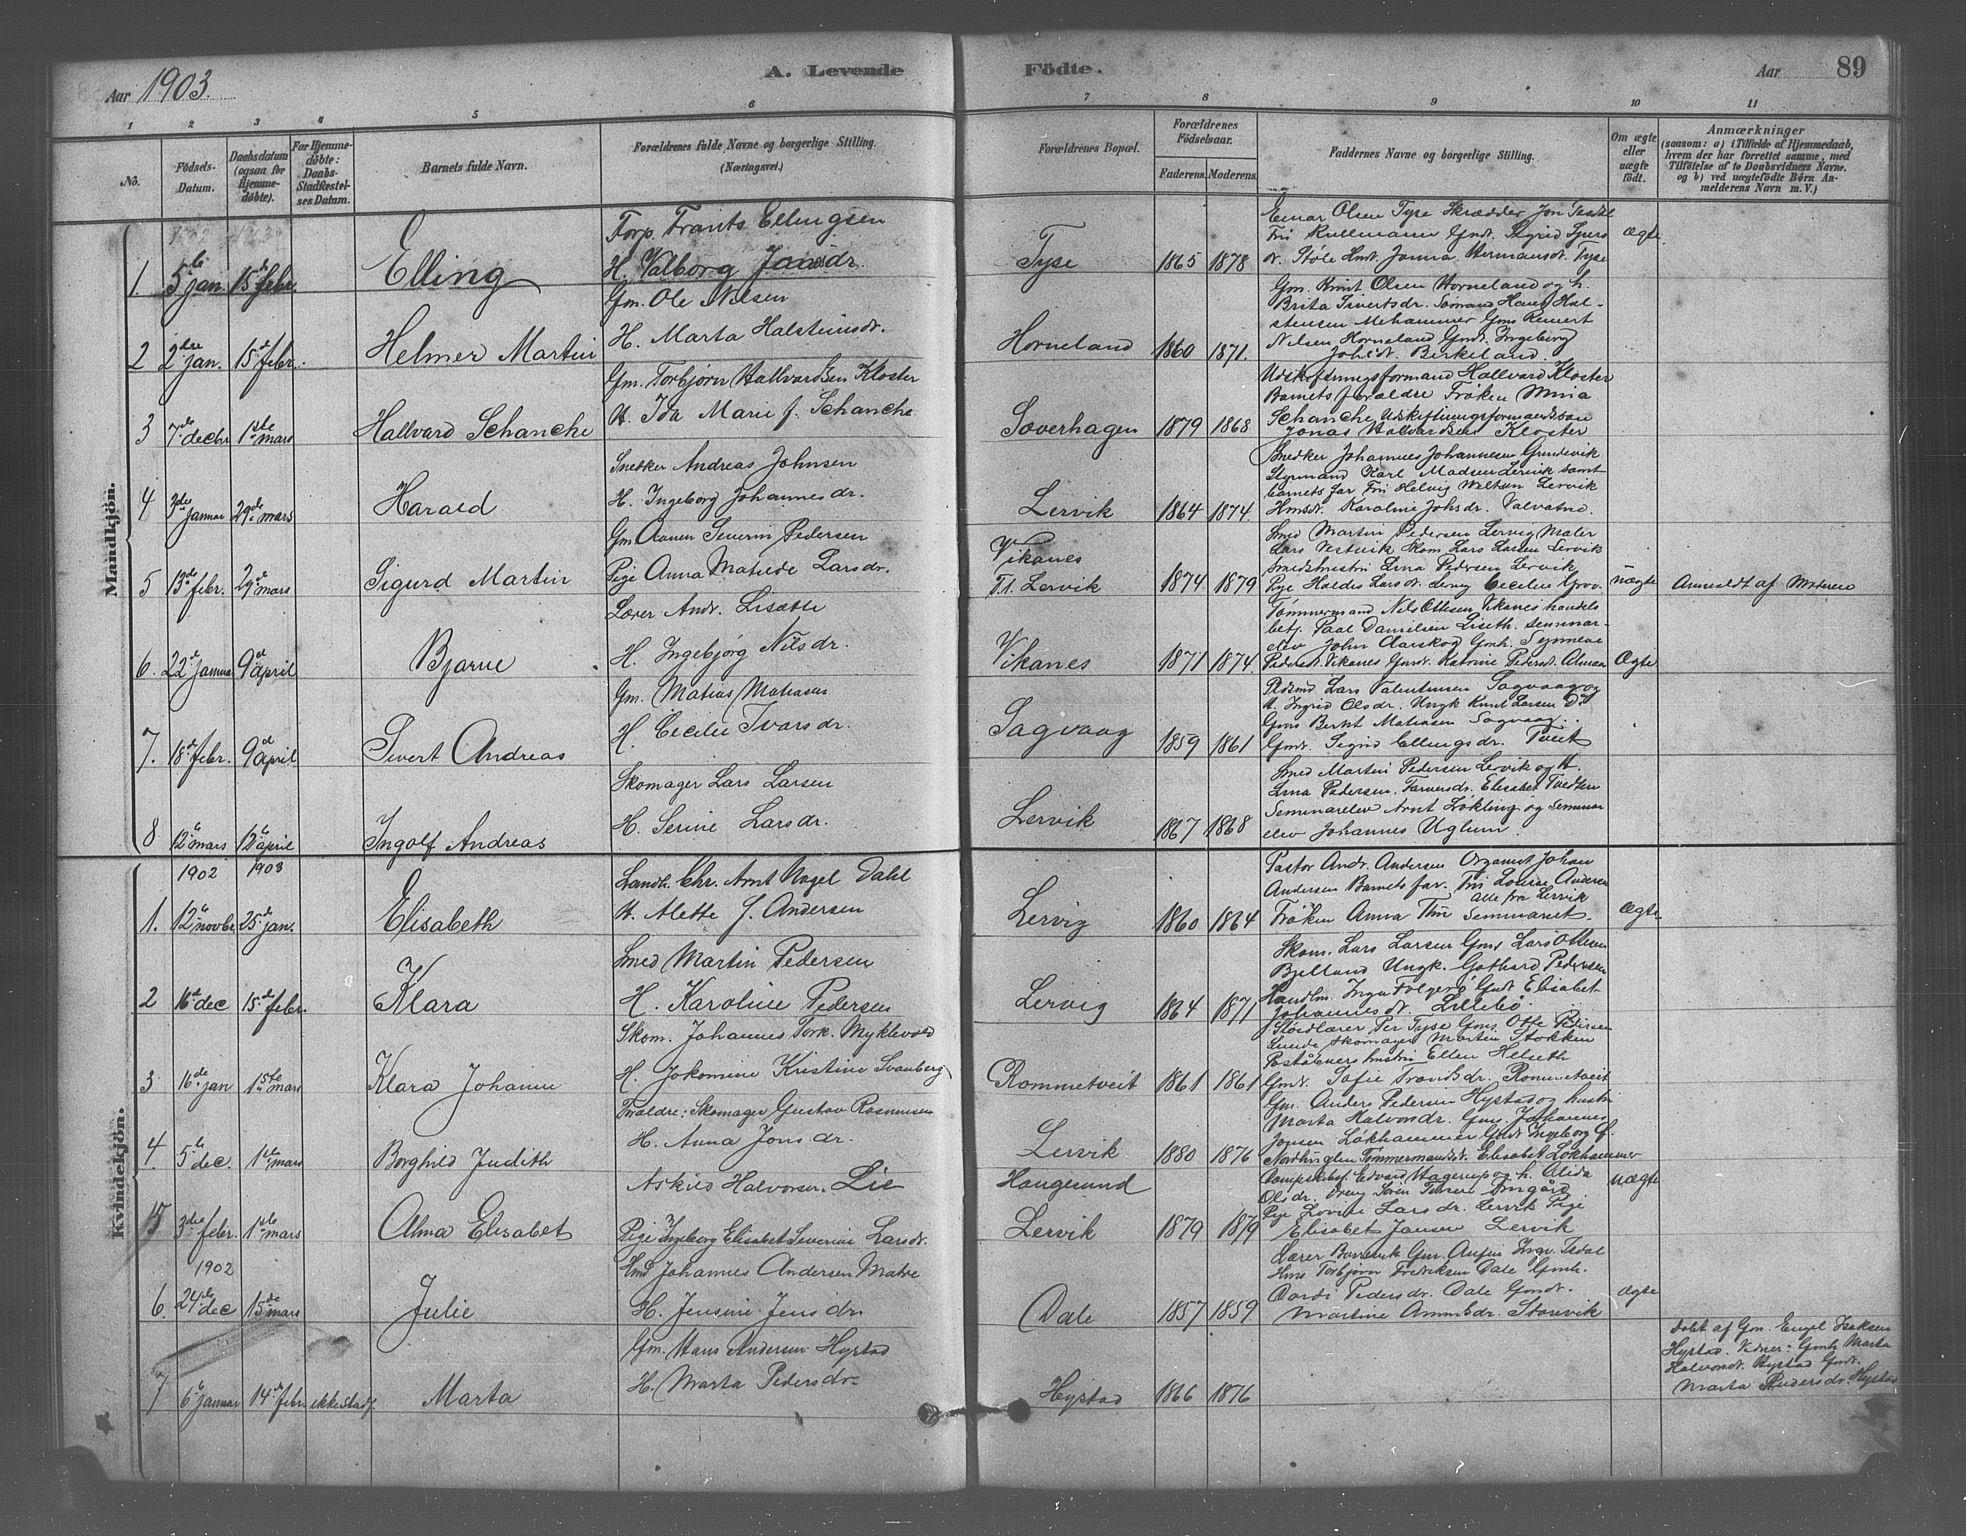 Aar 1903.
A. Levende Födte.
Aar 89
1 2 3 4 5 6 7 8 9 10 11
No.
Födsels-Datum.
Daabsdatum (ogsaa for Hjemme-döbte).
For Hjemme-döbte: Daabs-Stadfæstel-ses Datum.
Barnets fulde Navn.
Forældrenes fulde Navne og borgerlige Stilling. (Næringsvei.)
Forældrenes Bopæl.
Forældrenes Födselsaar.
Faderens. Moderens.
Faddernes Navne og borgerlige Stilling.
Om ægte eller uægte födt.
Anmærkninger
(saasom: a) i Tilfælde af Hjemmedaab, hvem der har forrettet samme, med Tilföielse af to Daabsvidners Navne. og b) ved uægtefödte Börn Anmelderens Navn m. V.)
Mandkjön.
1. 5te jan. 15de febr. Elling
Forp. Frants Ellingsen
H. Valborg Jansdr.
Tyse 1865 1878
Einar Olsen Tyse Skrædder Jon
dr. Støle Hmdt. Jonna Hermansdr. Tyse
ægte
2 2den jan. 15de febr. Helmer Martin
Gm. Ole Nilsen
H. Marta Halsteinsdr.
Horneland 1860 1871.
Gm. Knut Olsen Horneland og h.
Brita Sivertsdr. Sømand Hans Hal-
stensen Mehammer Gms Reinert
Nilsen Horneland Gmdt. Ingeborg
Johsdr. Birkeland.
3 7de decbr 1ste mars Hallvard Schanche
Gm. Torbjørn Hallvardsen Kloster
H. Ida Marie f. Schanche
Sæverhagen 1879 1868
Udskiftningsformand Hallvard Kloster
Barnets forældre Frøken Mina
Schanche Udskiftningsformandsøn
Jonas Hallvardsen Kloster
4 3de januar 29de mars Harald
Snekker Andreas Johnsen
H. Ingeborg Johannesdr.
Lervik 1864 1874.
Snedker Johannes Johannesen Grundevik
Styrmand Karl Madsen Lervik samt
barnets far Frk Helvig Lervik
Hmsdt. Karoline Johsdr. Valvatne
5 13de febr. 29de mars Sigurd Martin
Gm. Severin Pedersen
Pige Anna Matilde Larsdr.
Vikanes
T.t. Lervik 1874 1879
Smed Martin Pedersen Lervig Maler
Lars Vestvik Skom. Lars Larsen Lervik
Smedhustru Lina Pedersen Lervik
uægte Anmeldt af Moderen
6. 22de januar 9de april Bjarne
Lærer Andr. Lisæth
H. Ingebjørg Nilsdr.
Vikanes 1871 1874.
Tømmermand Nils Ottesen Vikanes handels
betj. Paal Danielsen Liseth. seminar-
elev John Gmh. Synneve
Pedersdt. Vikanes Gmdt. Katrine Pedersdt. Almaas
Ægte
7. 18de febr. 9de april Sivert Andreas
Gm. Matias Matiasen
H. Cecilie Ivarsdr.
Sagvaag 1859 1861
Lars Valentinsen Sagvaag og
H. Ingrid Olsdr. Ungk Knut Larsen Do
Gms Bernt Matiasen Sagvaag.
Gmdt. Sigrid Ellingsdr. Tveit
8 12te mars 12te april Ingolf Andreas
Skomager Lars Larsen
H. Serine Larsdr.
Lervik 1867 1868
Smed Martin Pedersen Lervik og H.
Lina Pedersen. Farversdr. Elisabet Tvedten
Seminarelev Arnt Løkling og seminar
elev Johannes Uglum.
Kvindekjön.
1902 1903
1. 12te novbr 25de jan. Elisabeth
Landh. Chr. Arnt Nagel Dahl
H. Alette f. Andersen
Lervig 1860 1864
Pastor Andr. Andersen Organist Johan
Andersen Barnets far. Fru Louise Andersen
alle fra Lervik
Frøken Anna Thu Seminaret.
Ægte
2 16de dec 15de febr. Klara
Smed Martin Pedersen
H. Karoline Pedersen
Lervig 1864 1871
Skom. Lars Larsen Gms Lars Ottesen
Bjelland Ungk. Gothard Pedersen
Handlm. Inga Følgerø Gmdt Elisabet
Johannesdt. Lillebø.
3 16de jan 1ste mars Klara Johanne
Skom. Johannes Tork. Myklevold
H. Jokomine Kristine Svanberg
Rommetveit 1861 1861
Sløidlærer Per Tyse Gms. Otte Pedersen
Lunde Skomager Morten Stokken
Poståbners hustru Ellen Helseth
Gmdt. Sofie Trondsdr. Rommetveit
4. 5te dec. 1ste mars Borghild Judith
Forældre: Skomager Gustav Rasmussen
H. Anna Jonsdr.
Lervik 1880 1876
Gm. Anders Pedersen Hystad og hustru
Marta Halvorsdr. Gms Johannes
Jonsen Løkhammer Gmdt Ingeborg
Nordhuglen Tømmermandsdt. Elisabet Løkhammer
5 3de febr. 1ste mars Alma Elisabet
Askild Halvorsen Lie
Pige Ingeborg Elisabet Severine Larsdt.
Haugesund
Lervik 1879 1879
Edvard Hagerup og h. Alida
Olsdr. Dreng Søren
Pige Lovise Larsdr. Lervik Pige
Elisabet Jansen Lervik
uægte
1902
6. 24de dec 15de mars Julie
Hmd Johannes Andersen Matre
H. Jensine Jensdr.
Dale 1857 1859
Lærer Bondevik Gm. Anfin Ingv. Isdal
Hms Torbjørn Fredriksen Dale Gmh.
Pedersdr. Dale Gmdt.
Martine Ammsdr. Storevik
ægte
7 6te januar 14de febr. ikke stadf. Marta
Gm. Hans Andersen Hystad
H. Marta Pedersdr.
Hystad 1866 1876
Døbt af Gm. Engel Isaksen
Hystad. Vidner: Gmh Marta
Halvorsdt. Hystad Gmdt.
Marta Pedersdr. Hystad